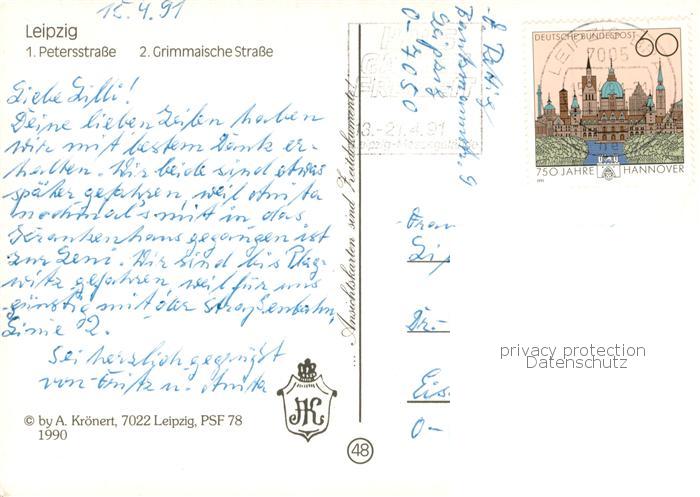 15.4.91
Leipzig
1. Petersstraße 2. Grimmaische Straße
Liebe Lilli!
Deine lieben Zeilen haben
wir mit bestem Dank er-
halten. Wir beide sind etwas
später gefahren, weil Anita
nochmal's mit in das
Krankenhaus gegangen ist
zur Leni. Wir sind bis Plag-
witz gefahren, weil für uns
günstig mit der Straßenbahn,
Linie 2.
Sei herzlich gegrüßt
von Fritz u. Anita
© by A. Krönert, 7022 Leipzig, PSF 78
1990
AK
... Ansichtskarten sind Zeitdokumente!
48
Leipzig
0-7050
18.-21.4.91
Leipzig-Messegelände
LEIPZIG
7005
DEUTSCHE BUNDESPOST 60
750 JAHRE HANNOVER
1991
Frau
Dr.-
Eis
0-
privacy protection
Datenschutz